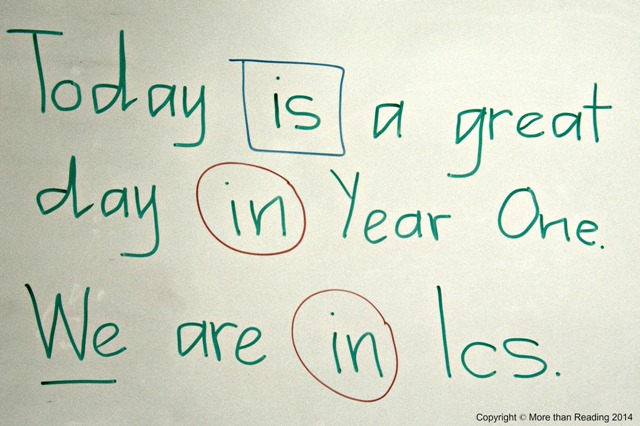 Today is a great
day in Year One.
We are in 1cs.
Copyright © More than Reading 2014